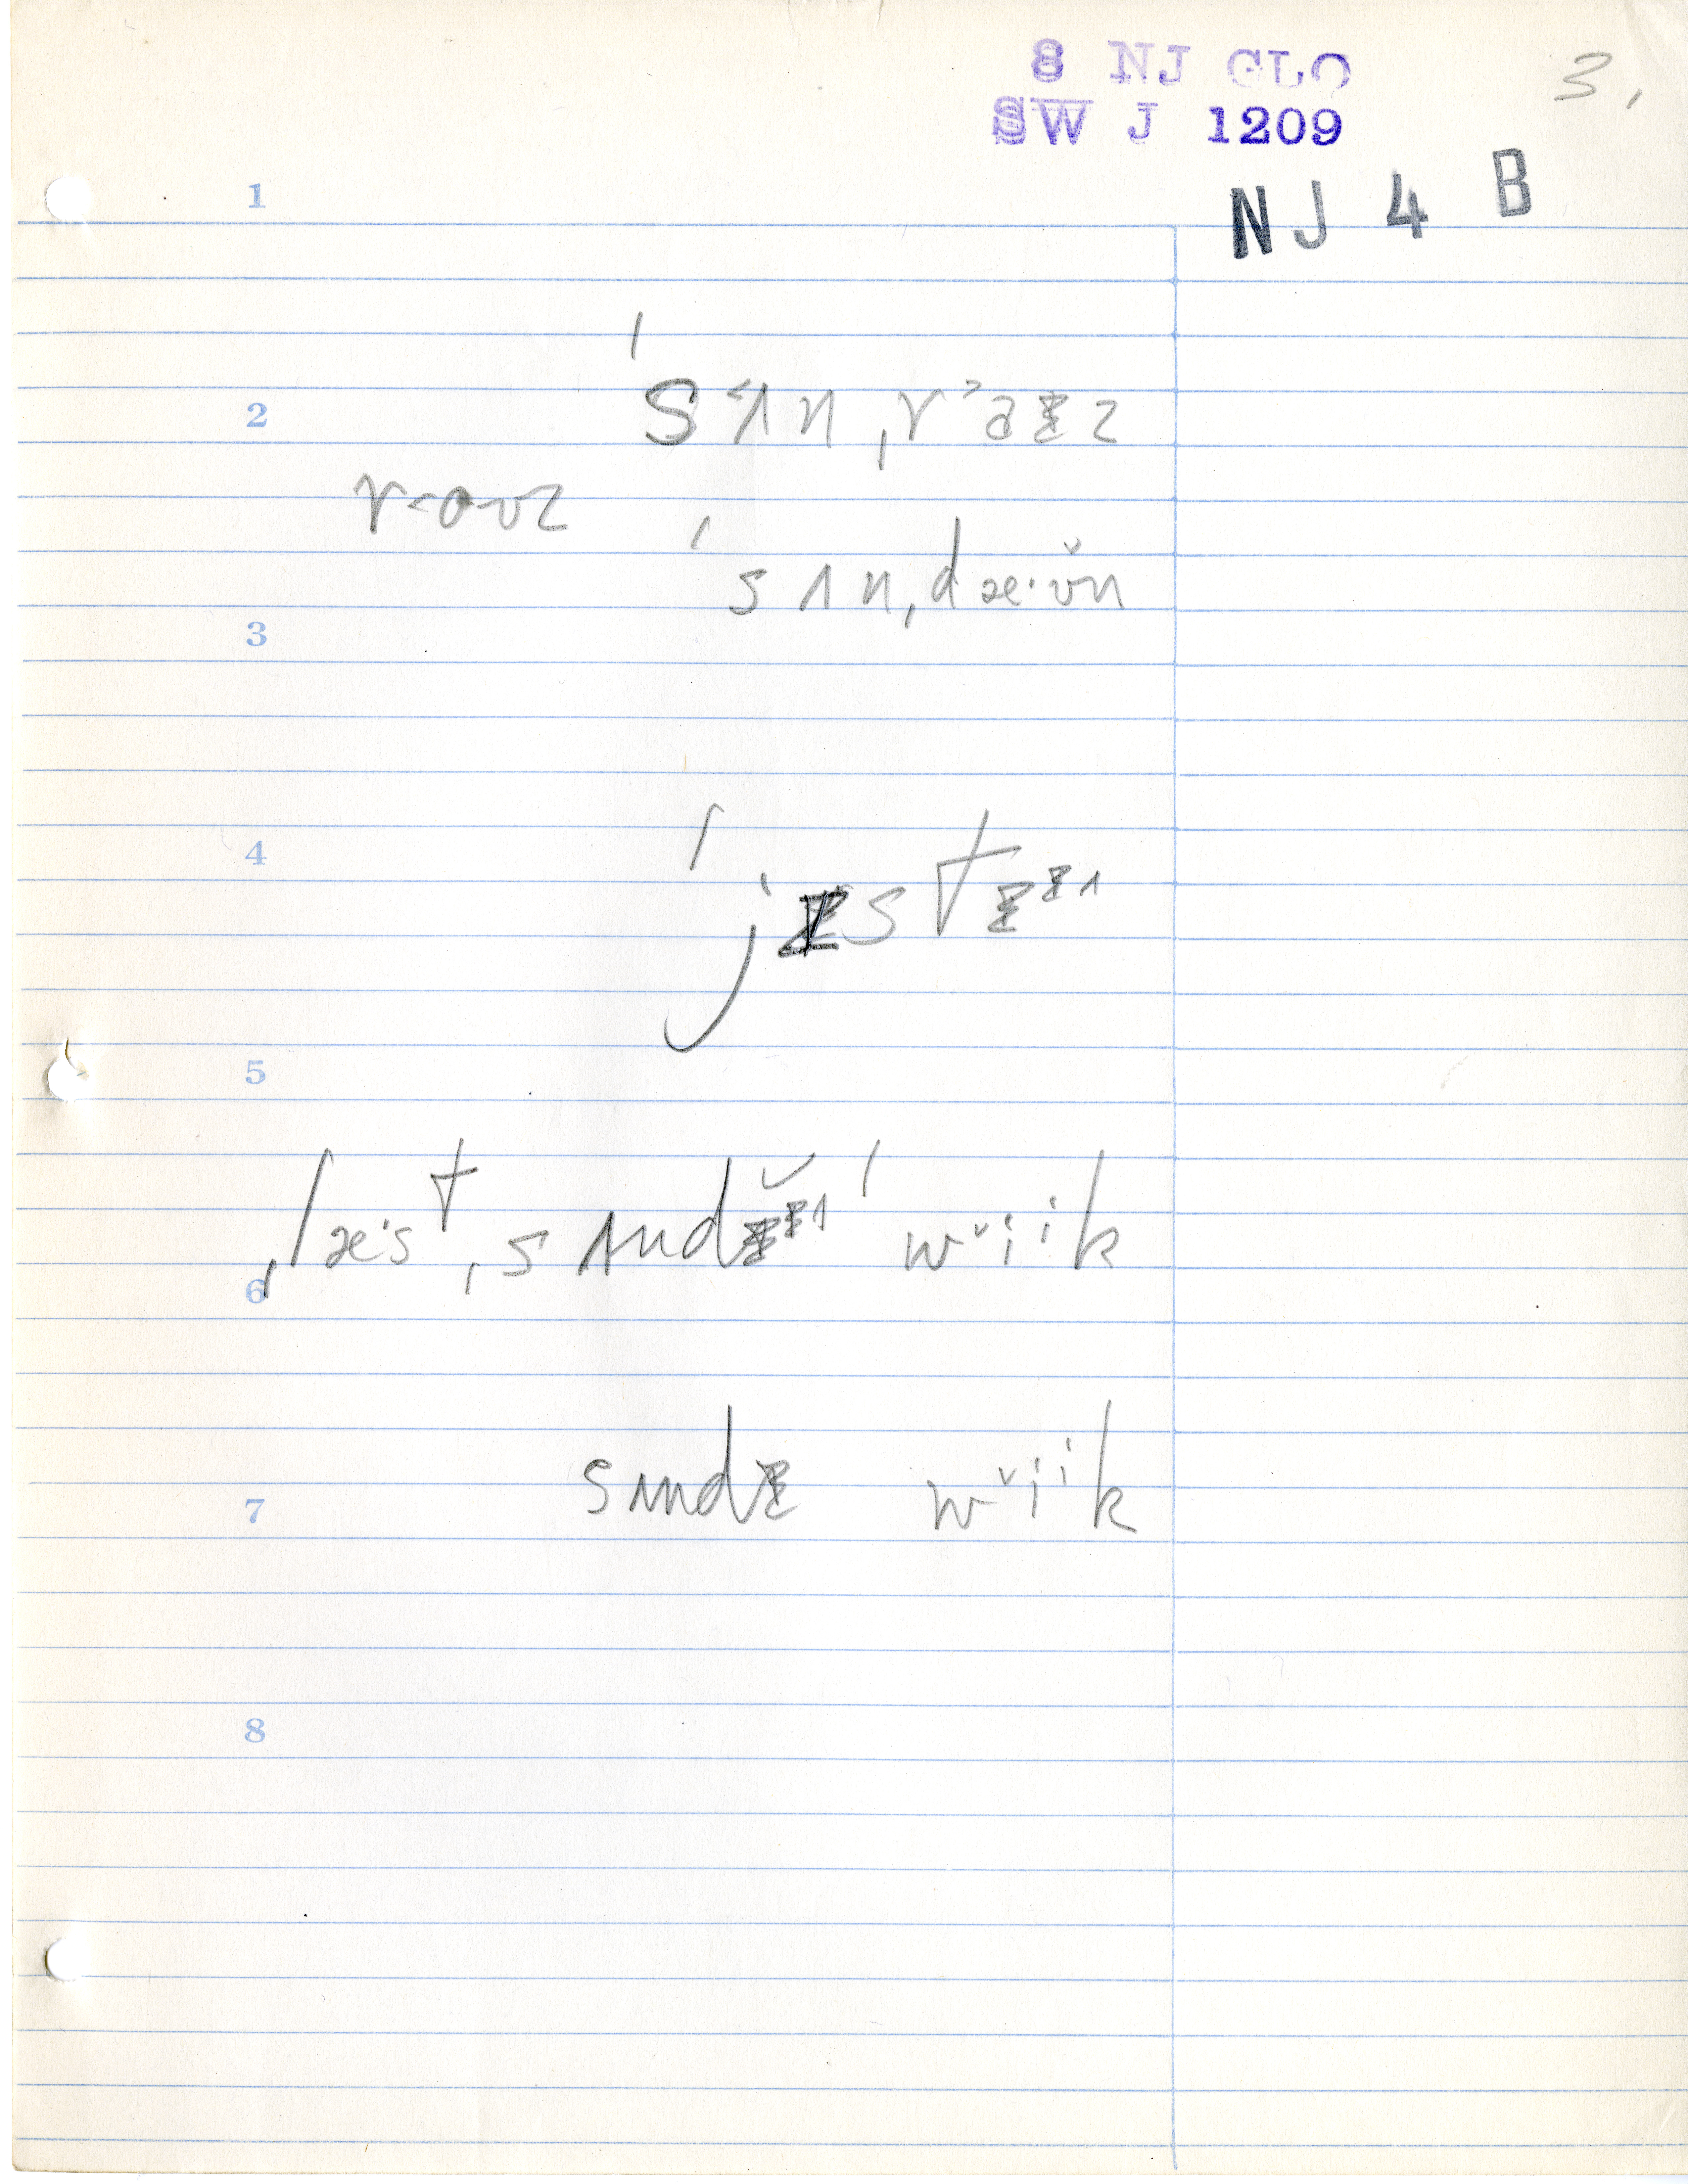 8 NJ GLO
3,
SW J 1209
NJ 4 B
1
ˈs˂ʌnˌr˃aɪz
2
r˂oʊz
ˈsʌnˌdæ·ʊ̆n
3
4
ˈjɪstɪᶦᶺ
5
ˌlæ·stˌsʌndɪ̆ᶦᶺ ˈwᵛiⁱk
6
sʌndɪ wᵛiⁱk
7
8